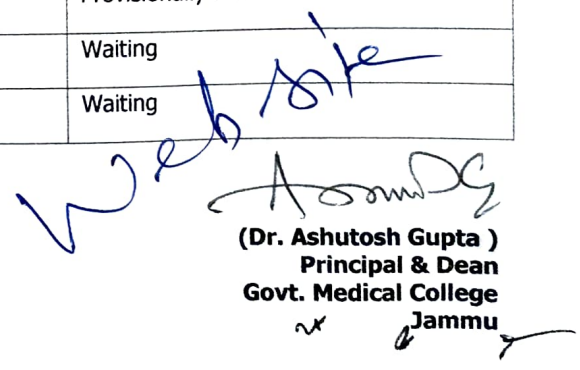 Provisionally
Waiting
Waiting
Web site
(Dr. Ashutosh Gupta )
Principal & Dean
Govt. Medical College
Jammu